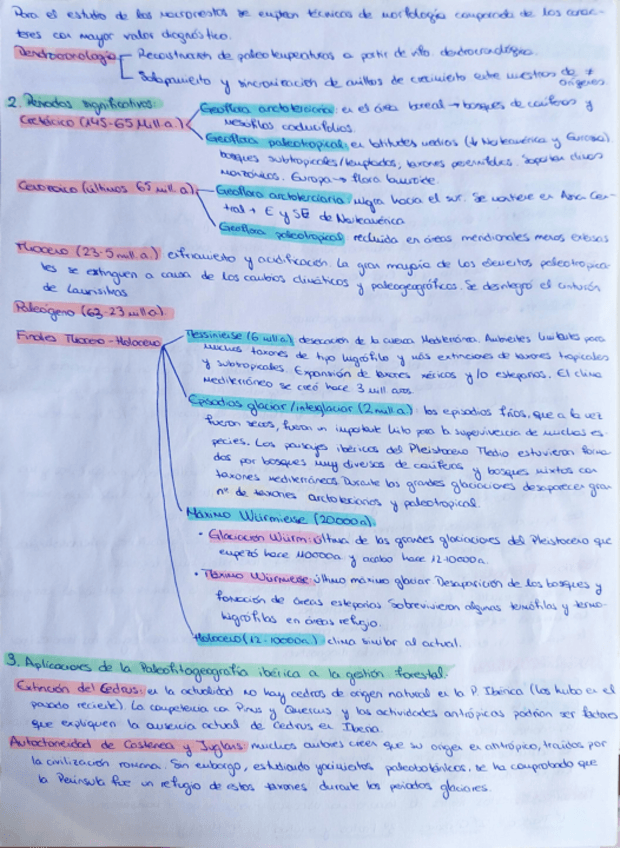 Para el estudio de los macrorrestos se emplean técnicas de morfología comparada de los carac-
teres con mayor valor diagnóstico.
Dendrocronología Reconstrucción de paleotemperaturas a partir de info. dendrocronológica.
Solapamiento y sincronización de anillos de crecimiento entre muestras de ≠
orígenes.
2. Periodos significativos
Cretácico (145-65 Mill a.) Geoflora arctoterciaria: en el área boreal → bosques de coníferas y
mesófilos caducifolios.
Geoflora paleotropical: en latitudes medias (↓ Norteamérica y Eurasia).
bosques subtropicales/templados, taxones perennifolios. Soportan climas
monzónicos. Europa → flora lauroide.
Cenozoico (últimos 65 mill. a) Geoflora arctoterciaria: migra hacia el sur. Se mantiene en Asia Cen-
tral + E y SE de Norteamérica
Geoflora paleotropical recluida en áreas meridionales menos extensas
Mioceno (23-5 mill. a.) enfriamiento y acidificación. La gran mayoría de los elementos paleotropica-
les se extinguen a causa de los cambios climáticos y paleogeográficos. Se desintegró el cinturón
de Laurisilvas
Paleógeno (63-23 mill a).
Finales Mioceno - Holoceno
Messiniense (6 mill a). desecación de la cuenca Mediterránea. Ambientes limitantes para
muchos taxones de tipo higrófilo y más extinciones de taxones tropicales
y subtropicales. Expansión de taxones xéricos y/o esteparios. El clima
Mediterráneo se creó hace 3 mill años.
Episodios glaciar/interglaciar (2 mill a.): los episodios fríos, que a la vez
fueron secos, fueron un importante hito para la supervivencia de muchas es-
pecies. Los paisajes ibéricos del Pleistoceno Medio estuvieron forma-
dos por bosques muy diversos de coníferas y bosques mixtos con
taxones mediterráneos. Durante las grandes glaciaciones desaparecen gran
nº de taxones arctoterciarios y paleotropical.
Máximo Würmiense (20000a).
• Glaciación Würm: última de las grandes glaciaciones del Pleistoceno que
empezó hace 110000a y acabó hace 12-10000a.
• Máximo Würmiense: último máximo glaciar. Desaparición de los bosques y
formación de áreas esteparias. Sobrevivieron algunas termófilas y termo-
higrófilas en áreas refugio.
Holoceno (12-10000a.) clima similar al actual.
3. Aplicaciones de la Paleofitogeografía ibérica a la gestión forestal.
Extinción del Cedrus: en la actualidad no hay cedros de origen natural en la P. Ibérica (los hubo en el
pasado reciente). La competencia con Pinus y Quercus y las actividades antrópicas podrían ser factores
que expliquen la ausencia actual de Cedrus en Iberia.
Autoctoneidad de Castanea y Juglans: muchos autores creen que su origen es antrópico, traídos por
la civilización romana. Sin embargo, estudiando yacimientos paleobotánicos, se ha comprobado que
la Península fue un refugio de estos taxones durante los periodos glaciares.